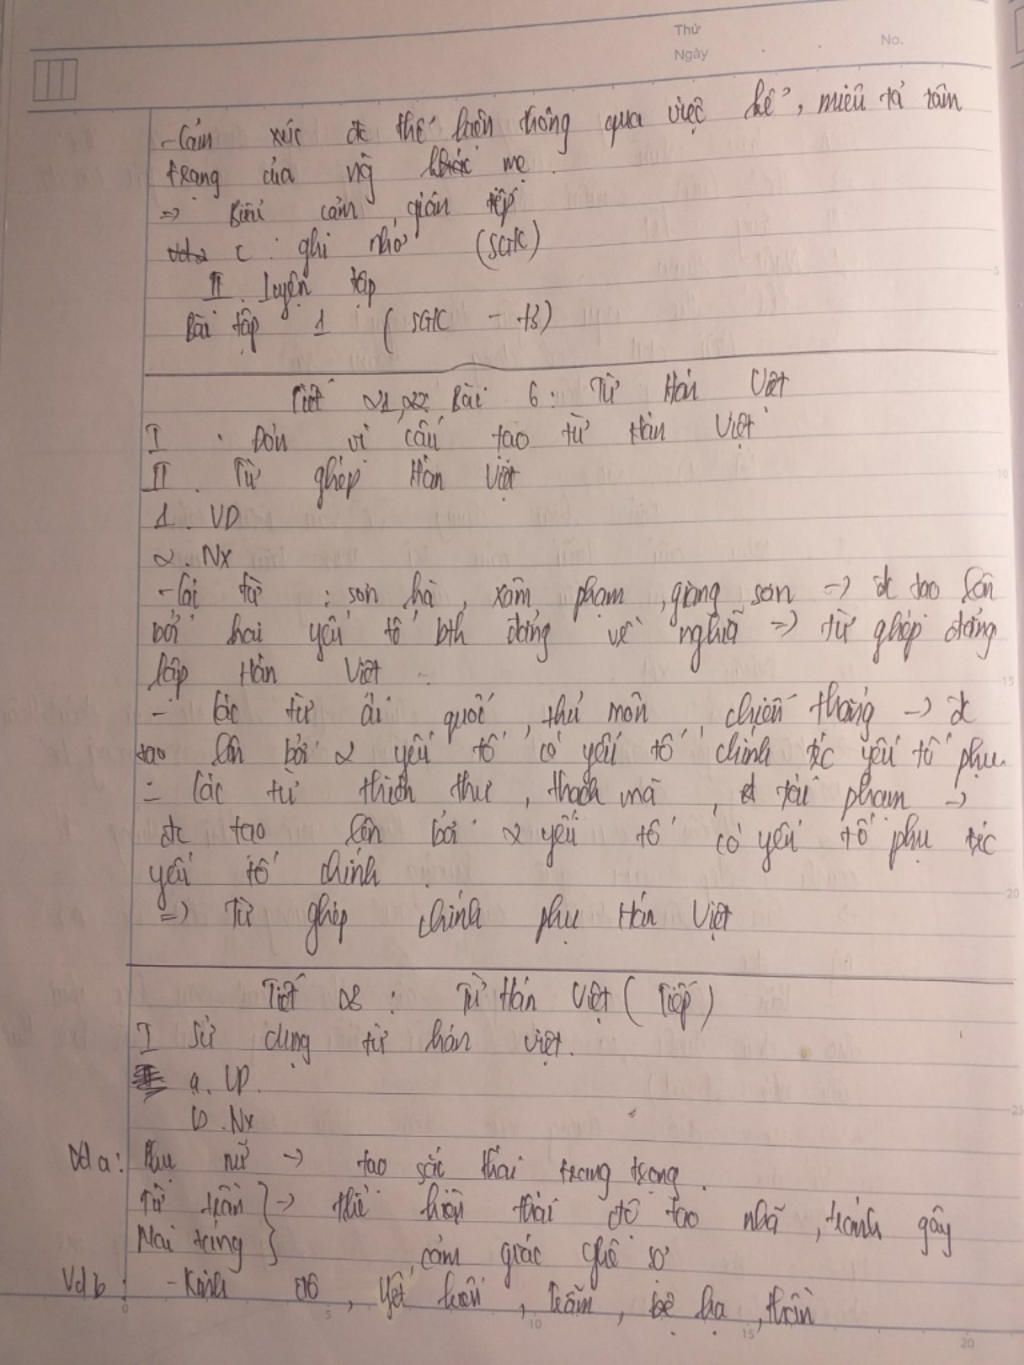 Thứ
Ngày
No.
- Cảm xúc đc thể hiện thông qua việc kể, miêu tả tâm
trạng của ng mẹ.
=> Biểu cảm gián tiếp
c. ghi nhớ (SGK)
II. Luyện tập
Bài tập 1 (SGK - 73)
Tiết 21,22 Bài 6: Từ Hán Việt
I. Đơn vị cấu tạo từ Hán Việt
II. Từ ghép Hán Việt
1. VD
2. Nx
- Các từ: sơn hà, xâm phạm, giang sơn -> đc tạo lên
bởi hai yếu tố bth đẳng về nghĩa => từ ghép đẳng
lập Hán Việt.
- Các từ ái quốc, thủ môn, chiến thắng -> đc
tạo lên bởi 2 yếu tố có yếu tố chính tc yếu tố phụ.
- Các từ thiên thư, thạch mã, tái phạm ->
đc tạo lên bởi 2 yếu tố có yếu tố phụ tc
yếu tố chính.
=> Từ ghép chính phụ Hán Việt
Tiết 28: Từ Hán Việt (Tiếp)
I Sử dụng từ hán việt.
a. VD.
b. Nx
Vd a: Phụ nữ -> tạo sắc thái trang trọng.
Từ trần } -> thể hiện thái độ tao nhã, tránh gây
Mai táng } cảm giác ghê sợ
Vd b: - Kinh đô, yết kiến, trẫm, bệ hạ, thần
5
10
15
20
25
0
5
10
15
20